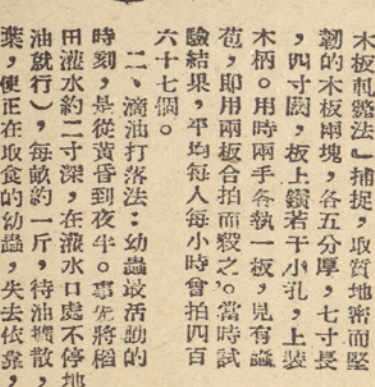 木板軋斃法』捕捉,取質地密而堅
韌的木板兩塊,各五分厚,七寸長
,四寸闊,板上鑽若干小孔,上裝
木柄。用時兩手各執一板,見有蟲
苞,卽用兩板合拍而殺之。當時試
驗結果,平均每人每小時曾拍四百
六十七個。
二、滴油打落法:幼蟲最活動的
時刻,是從黃昏到夜半。事先將稻
田灌水約二寸深,在灌水口處不停地
油就行),每畝約一斤,待油擴散,
葉,使正在取食的幼蟲,失去依靠,